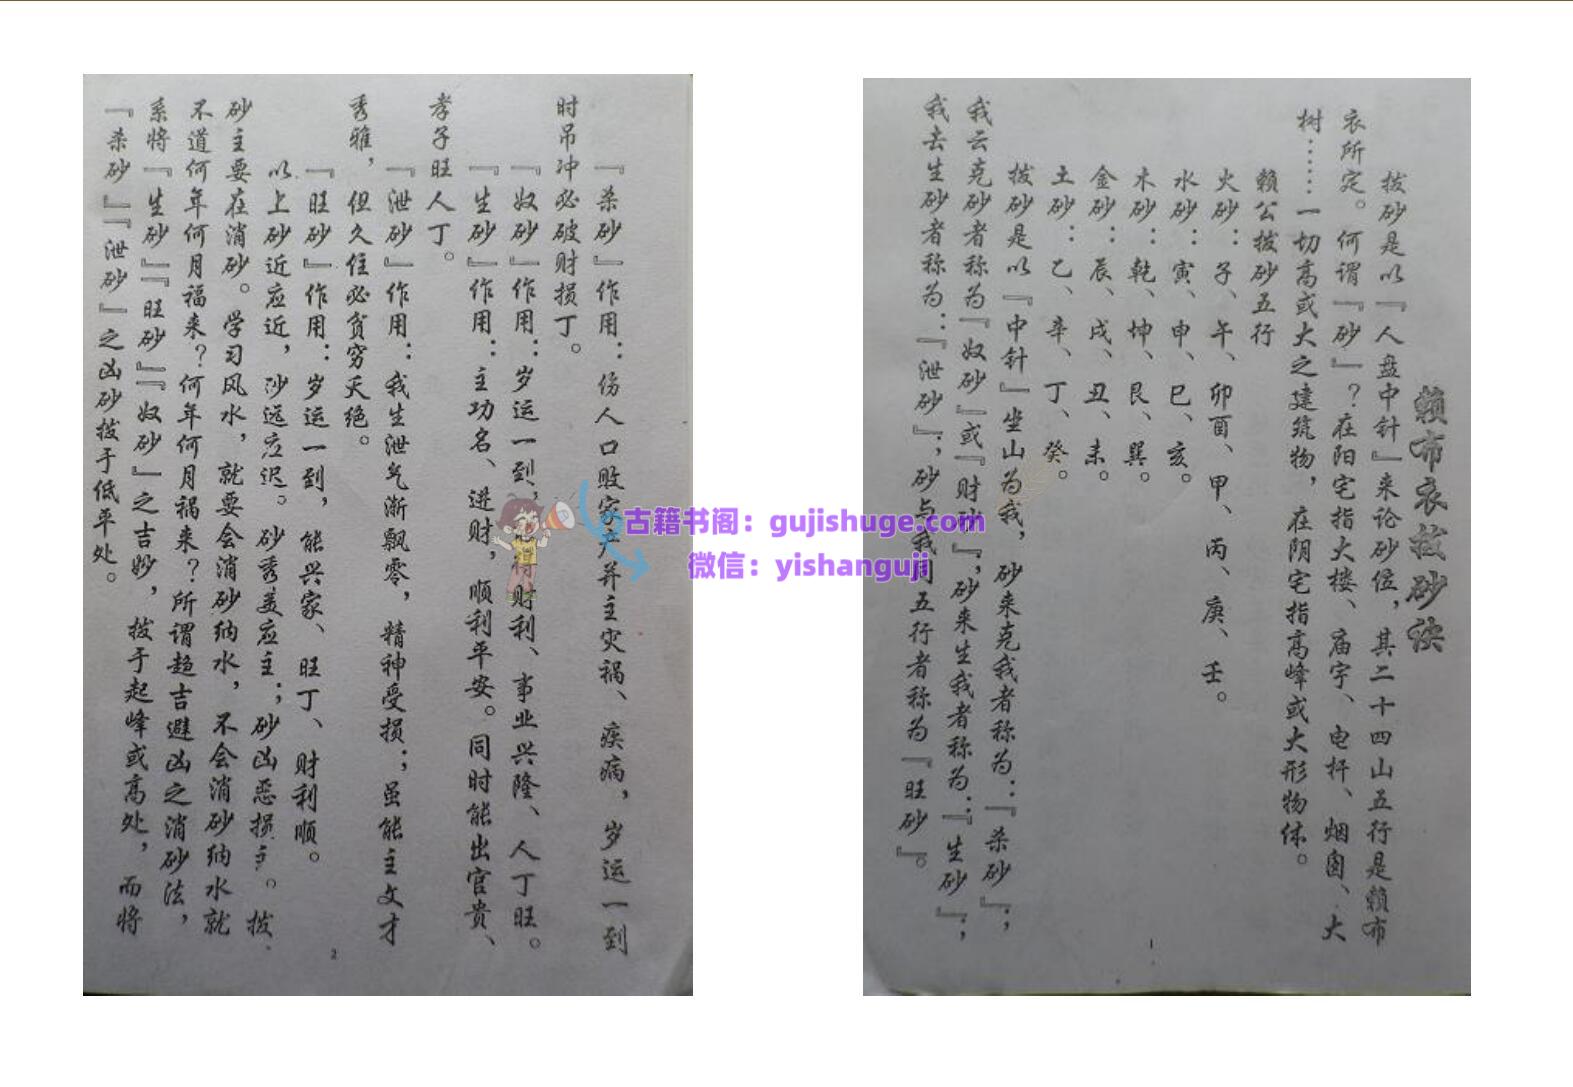 赖布衣拔砂诀
拔砂是以『人盘中针』来论砂位，其二十四山五行是赖布
衣所定。何谓『砂』？在阳宅指大楼、庙宇、电杆、烟囱、大
树……一切高或大之建筑物，在阴宅指高峰或大形物体。
赖公拔砂五行
火砂：子、午、卯酉、甲、丙、庚、壬。
水砂：寅、申、巳、亥。
木砂：乾、坤、艮、巽。
金砂：辰、戌、丑、未。
土砂：乙、辛、丁、癸。
拔砂是以『中针』坐山为我，砂来克我者称为：『杀砂』；
我云克砂者称为『奴砂』或『财砂』，砂来生我者称为：『生砂』；
我去生砂者称为：『泄砂』；砂与我同五行者称为『旺砂』。
1
『杀砂』作用：伤人口败家产并主灾祸、疾病，岁运一到
时吊冲必破财损丁。
『奴砂』作用：岁运一到，得财利、事业兴隆、人丁旺。
『生砂』作用：主功名、进财，顺利平安。同时能出官贵、
孝子旺人丁。
『泄砂』作用：我生泄气渐飘零，精神受损；虽能主文才
秀雅，但久住必贫穷夭绝。
『旺砂』作用：岁运一到，能兴家、旺丁、财利顺。
以上砂近应近，沙远应迟。砂秀美应主；砂凶恶损主。拔
砂主要在消砂。学习风水，就要会消砂纳水，不会消砂纳水就
不道何年何月福来？何年何月祸来？所谓趋吉避凶之消砂法，
系将『生砂』『旺砂』『奴砂』之吉妙，拔于起峰或高处，而将
『杀砂』『泄砂』之凶砂拔于低平处。
2
古籍书阁：gujishuge.com
微信：yishanguji